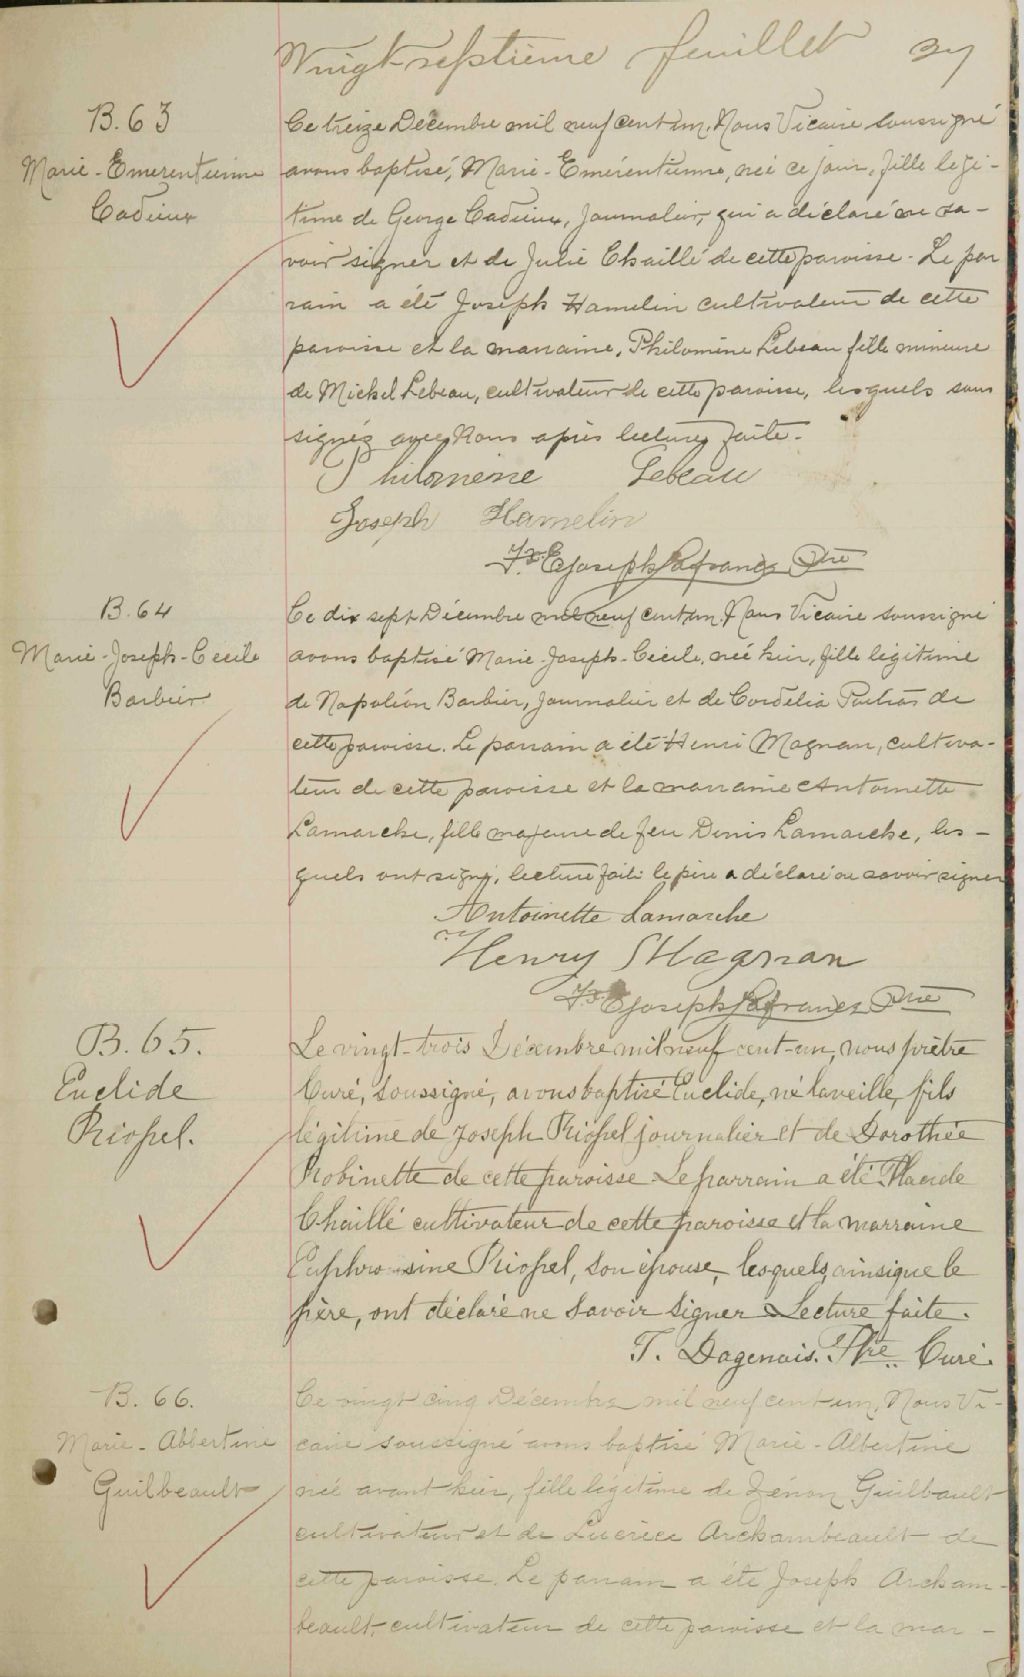 Vingt-septième feuillet 27
B. 63
Marie-Emerentienne
Cadieux
Ce treize Décembre mil neuf cent un, Nous Vicaire soussigné
avons baptisé, Marie-Emérentienne, née ce jour, fille légi-
time de George Cadieux, Journalier, qui a déclaré ne sa-
voir signer et de Julie Chaillé de cette paroisse. Le par
rain a été Joseph Hamelin cultivateur de cette
paroisse et la marraine, Philomène Lebeau fille mineure
de Michel Lebeau, cultivateur de cette paroisse, lesquels sous
signés avec Nous après lecture faite.
Philomène Lebeau
Joseph Hamelin
Fx. E. Joseph Lafrance Ptre
B. 64
Marie-Joseph-Cecile
Barbier
Ce dix sept Décembre mil neuf cent un, Nous Vicaire soussigné
avons baptisé Marie-Joseph-Cécile, née hier, fille légitime
de Napoléon Barbier, journalier et de Cordélia Poutras de
cette paroisse. Le parrain a été Henri Magnan, cultiva-
teur de cette paroisse et la marraine Antoinette
Lamarche, fille majeure de feu Denis Lamarche, les-
quels ont signé, lecture faite le père a déclaré ne savoir signer
Antoinette Lamarche
Henry Magnan
Fx. E. Joseph Lafrance Ptre
B. 65.
Euclide
Riopel.
Le vingt-trois Décembre mil neuf cent-un, nous prêtre
Curé, soussigné, avons baptisé Euclide, né la veille, fils
légitime de Joseph Riopel journalier et de Dorothée
Robinette de cette paroisse. Le parrain a été Placide
Chaillé cultivateur de cette paroisse et la marraine
Euphro-sine Riopel, son épouse, lesquels ainsi que le
père, ont déclaré ne savoir signer. Lecture faite.
T. Dagenais. Ptre Curé.
B. 66.
Marie-Abbertine
Guilbeault
Ce vingt cinq Décembre mil neuf cent un, Nous Vi-
caire soussigné avons baptisé Marie-Albertine
née avant hier, fille légitime de Zénon Guilbault
cultivateur et de Lucrèce Archambeault de
cette paroisse. Le parrain a été Joseph Archam-
beault, cultivateur de cette paroisse et la mar-